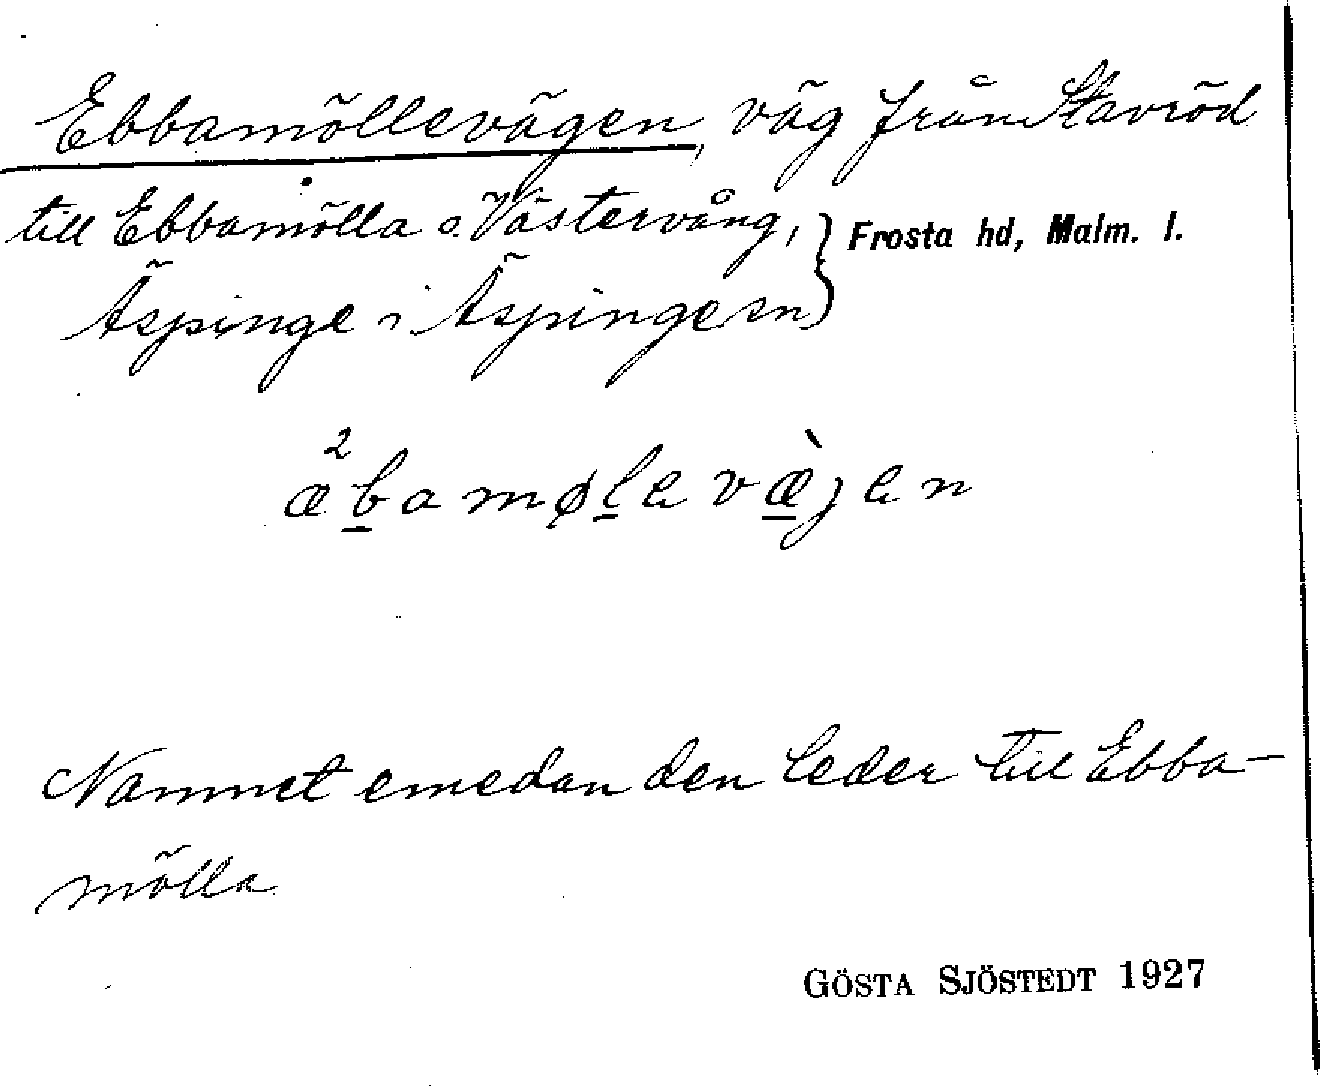 Ebbamöllevägen, väg från Stavröd
till Ebbamölla o. Västervång, } Frosta hd, Malm. l.
Äspinge i Äspinge sn
æ²bamøle væ̀jen
Namnet emedan den leder till Ebba-
mölla.
GÖSTA SJÖSTEDT 1927